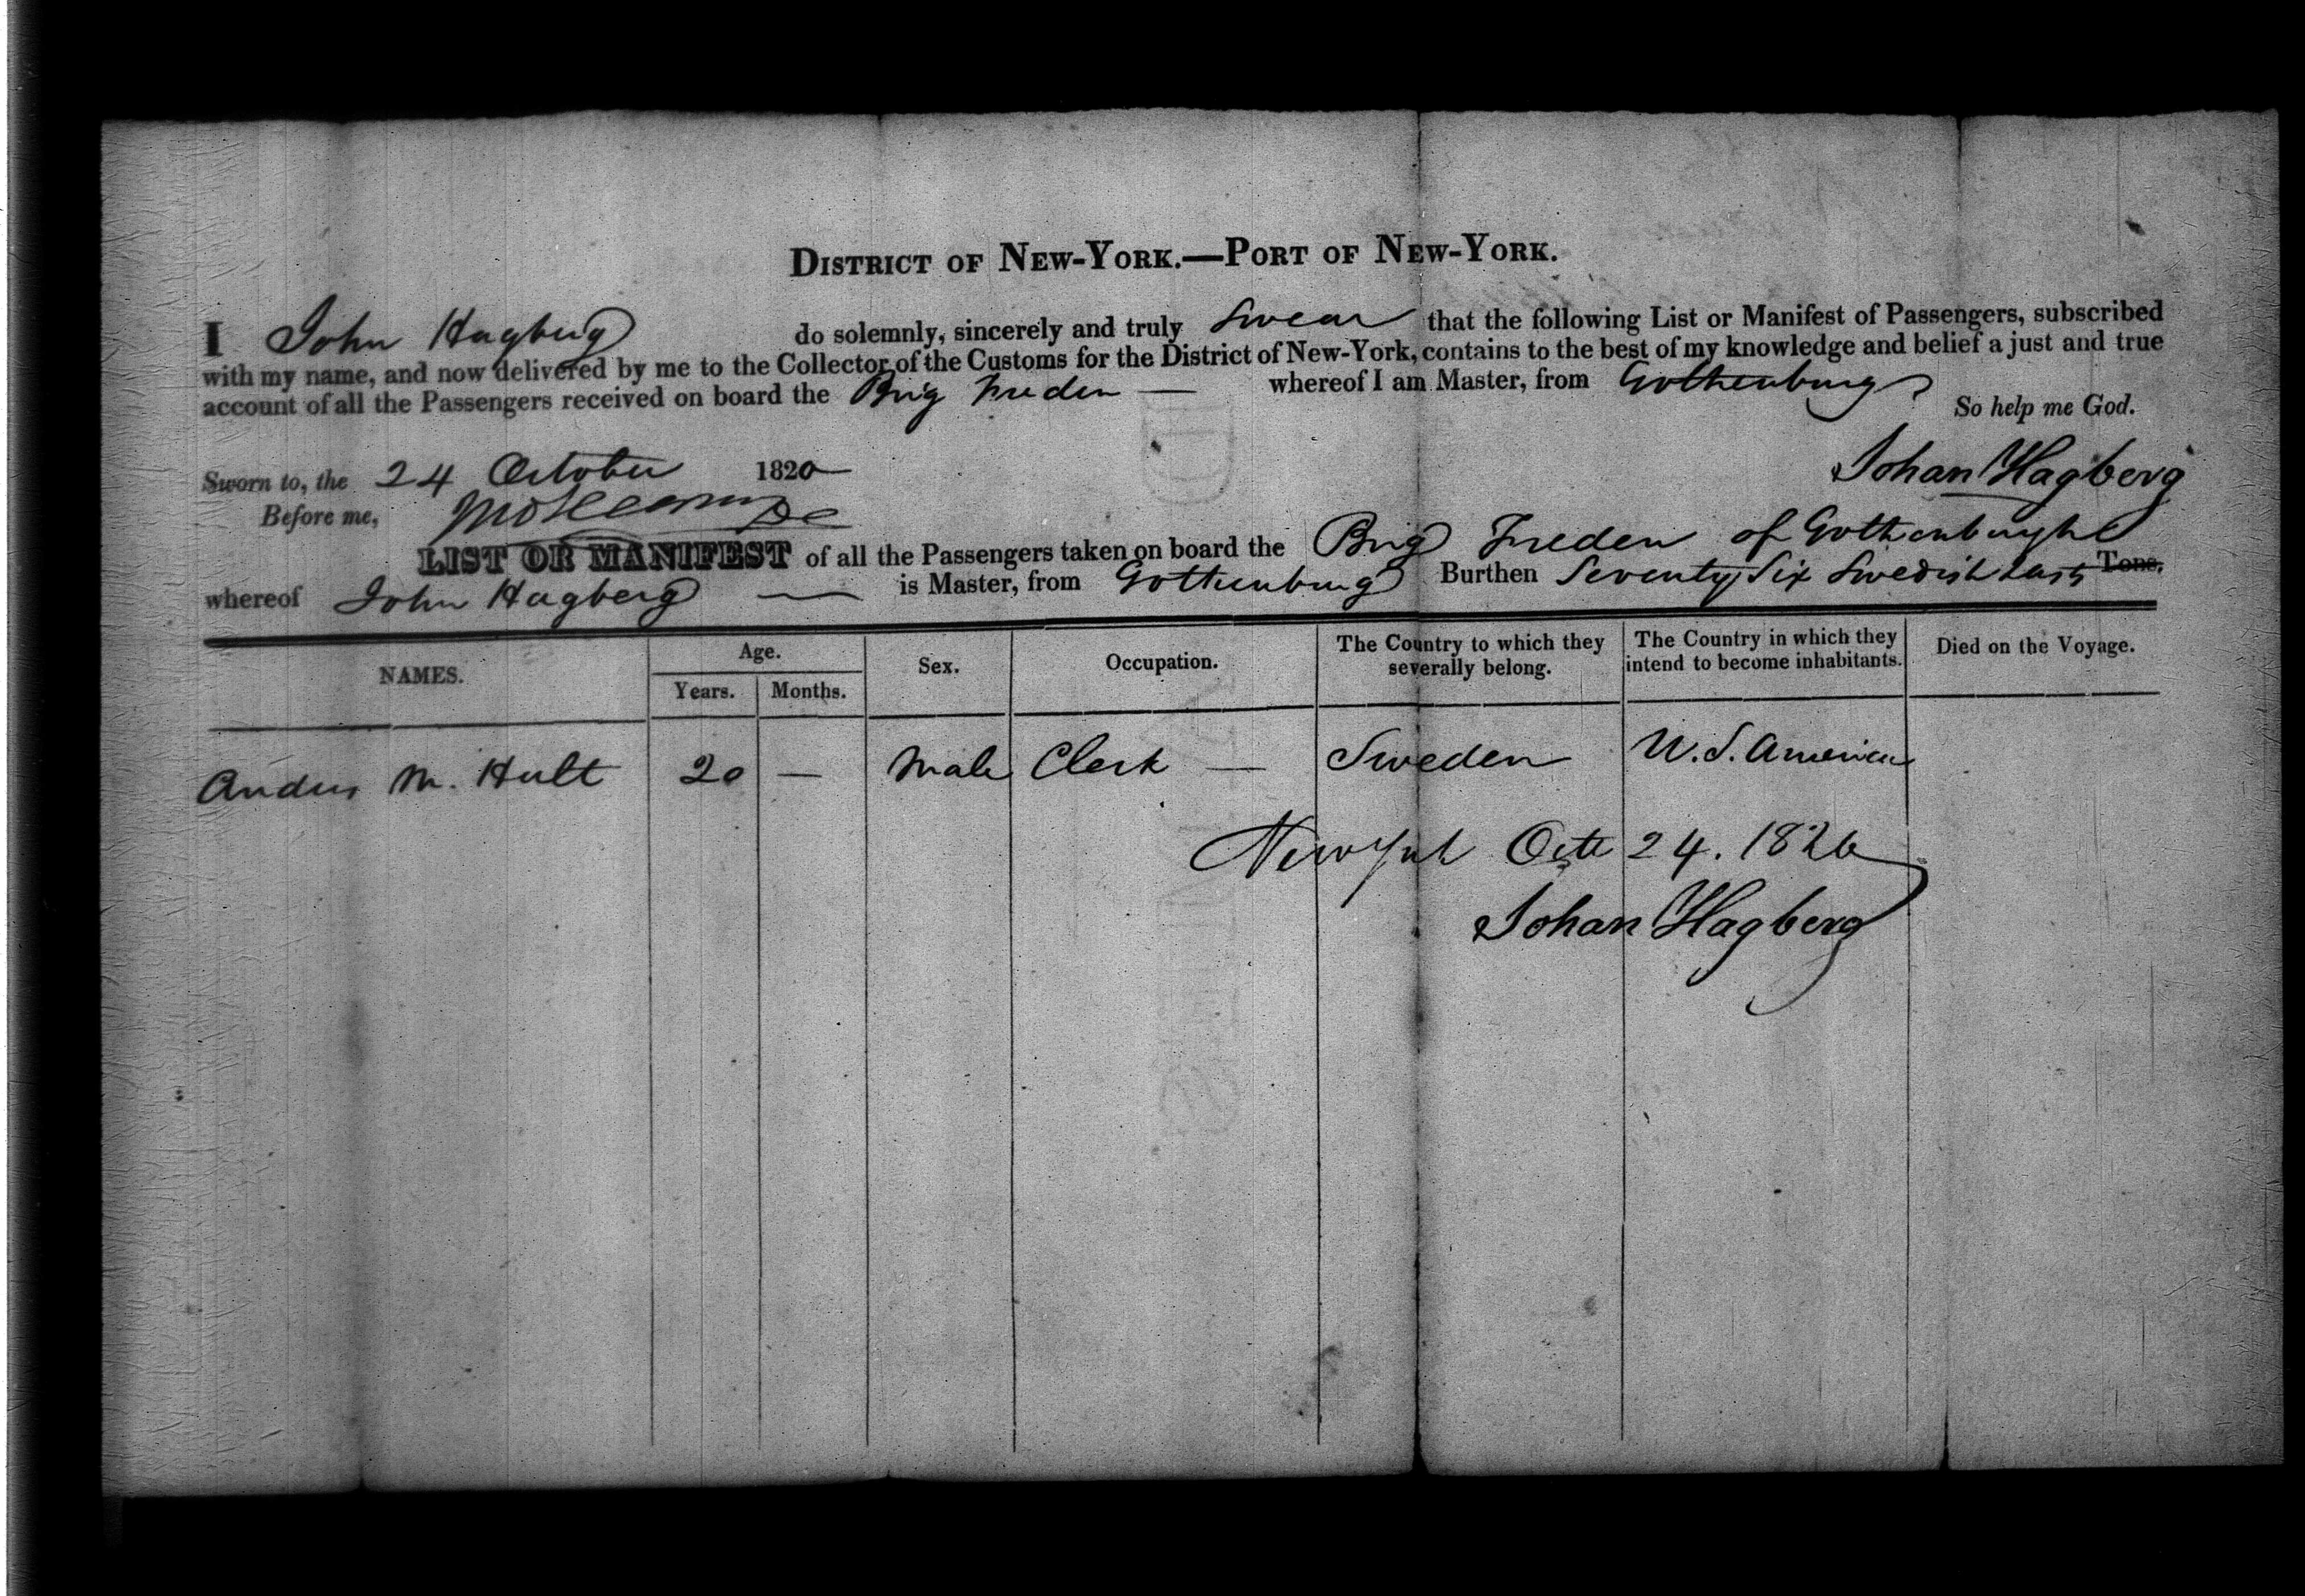 DISTRICT OF NEW-YORK.—PORT OF NEW-YORK.
I John Hagberg do solemnly, sincerely and truly Swear that the following List or Manifest of Passengers, subscribed
with my name, and now delivered by me to the Collector of the Customs for the District of New-York, contains to the best of my knowledge and belief a just and true
account of all the Passengers received on board the Brig Freden — whereof I am Master, from Gothenburg
So help me God.
Johan Hagberg
Sworn to, the 24 October 1820
Before me,
LIST OR MANIFEST of all the Passengers taken on board the Brig Freden of Gothenburgh
whereof John Hagberg — is Master, from Gothenburg Burthen Seventy Six Swedish Lasts Tons.
NAMES. Age. Years. Months. Sex. Occupation. The Country to which they severally belong. The Country in which they intend to become inhabitants. Died on the Voyage.
Anders M. Hult 20 — Male Clerk — Sweden U.S. America
New York Oct 24. 1820
Johan Hagberg